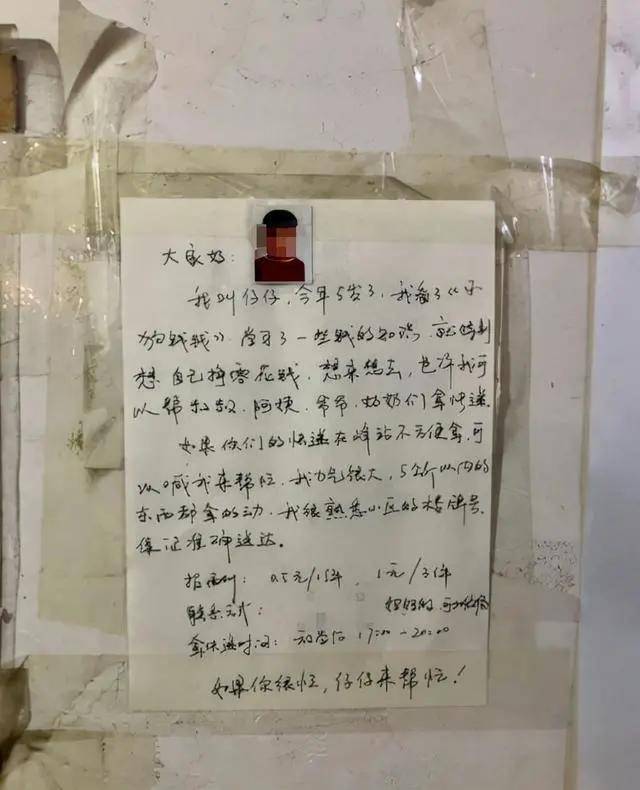 大家好：
我叫仔仔，今年5岁了，我看了《小
狗钱钱》学习了一些钱的知识，就特别
想自己挣零花钱，想来想去，也许我可
以帮叔叔、阿姨、爷爷、奶奶们拿快递。
如果你们的快递在峰站不方便拿，可
以喊我来帮忙，我力气很大，5公斤以内的
东西都拿的动，我很熟悉小区的楼牌号，
保证准确送达。
报酬： 0.5元/1件，1元/3件
联系方式： 妈妈的，可加微信
拿快递时间：放学后 17:00-20:00
如果你很忙，仔仔来帮忙！